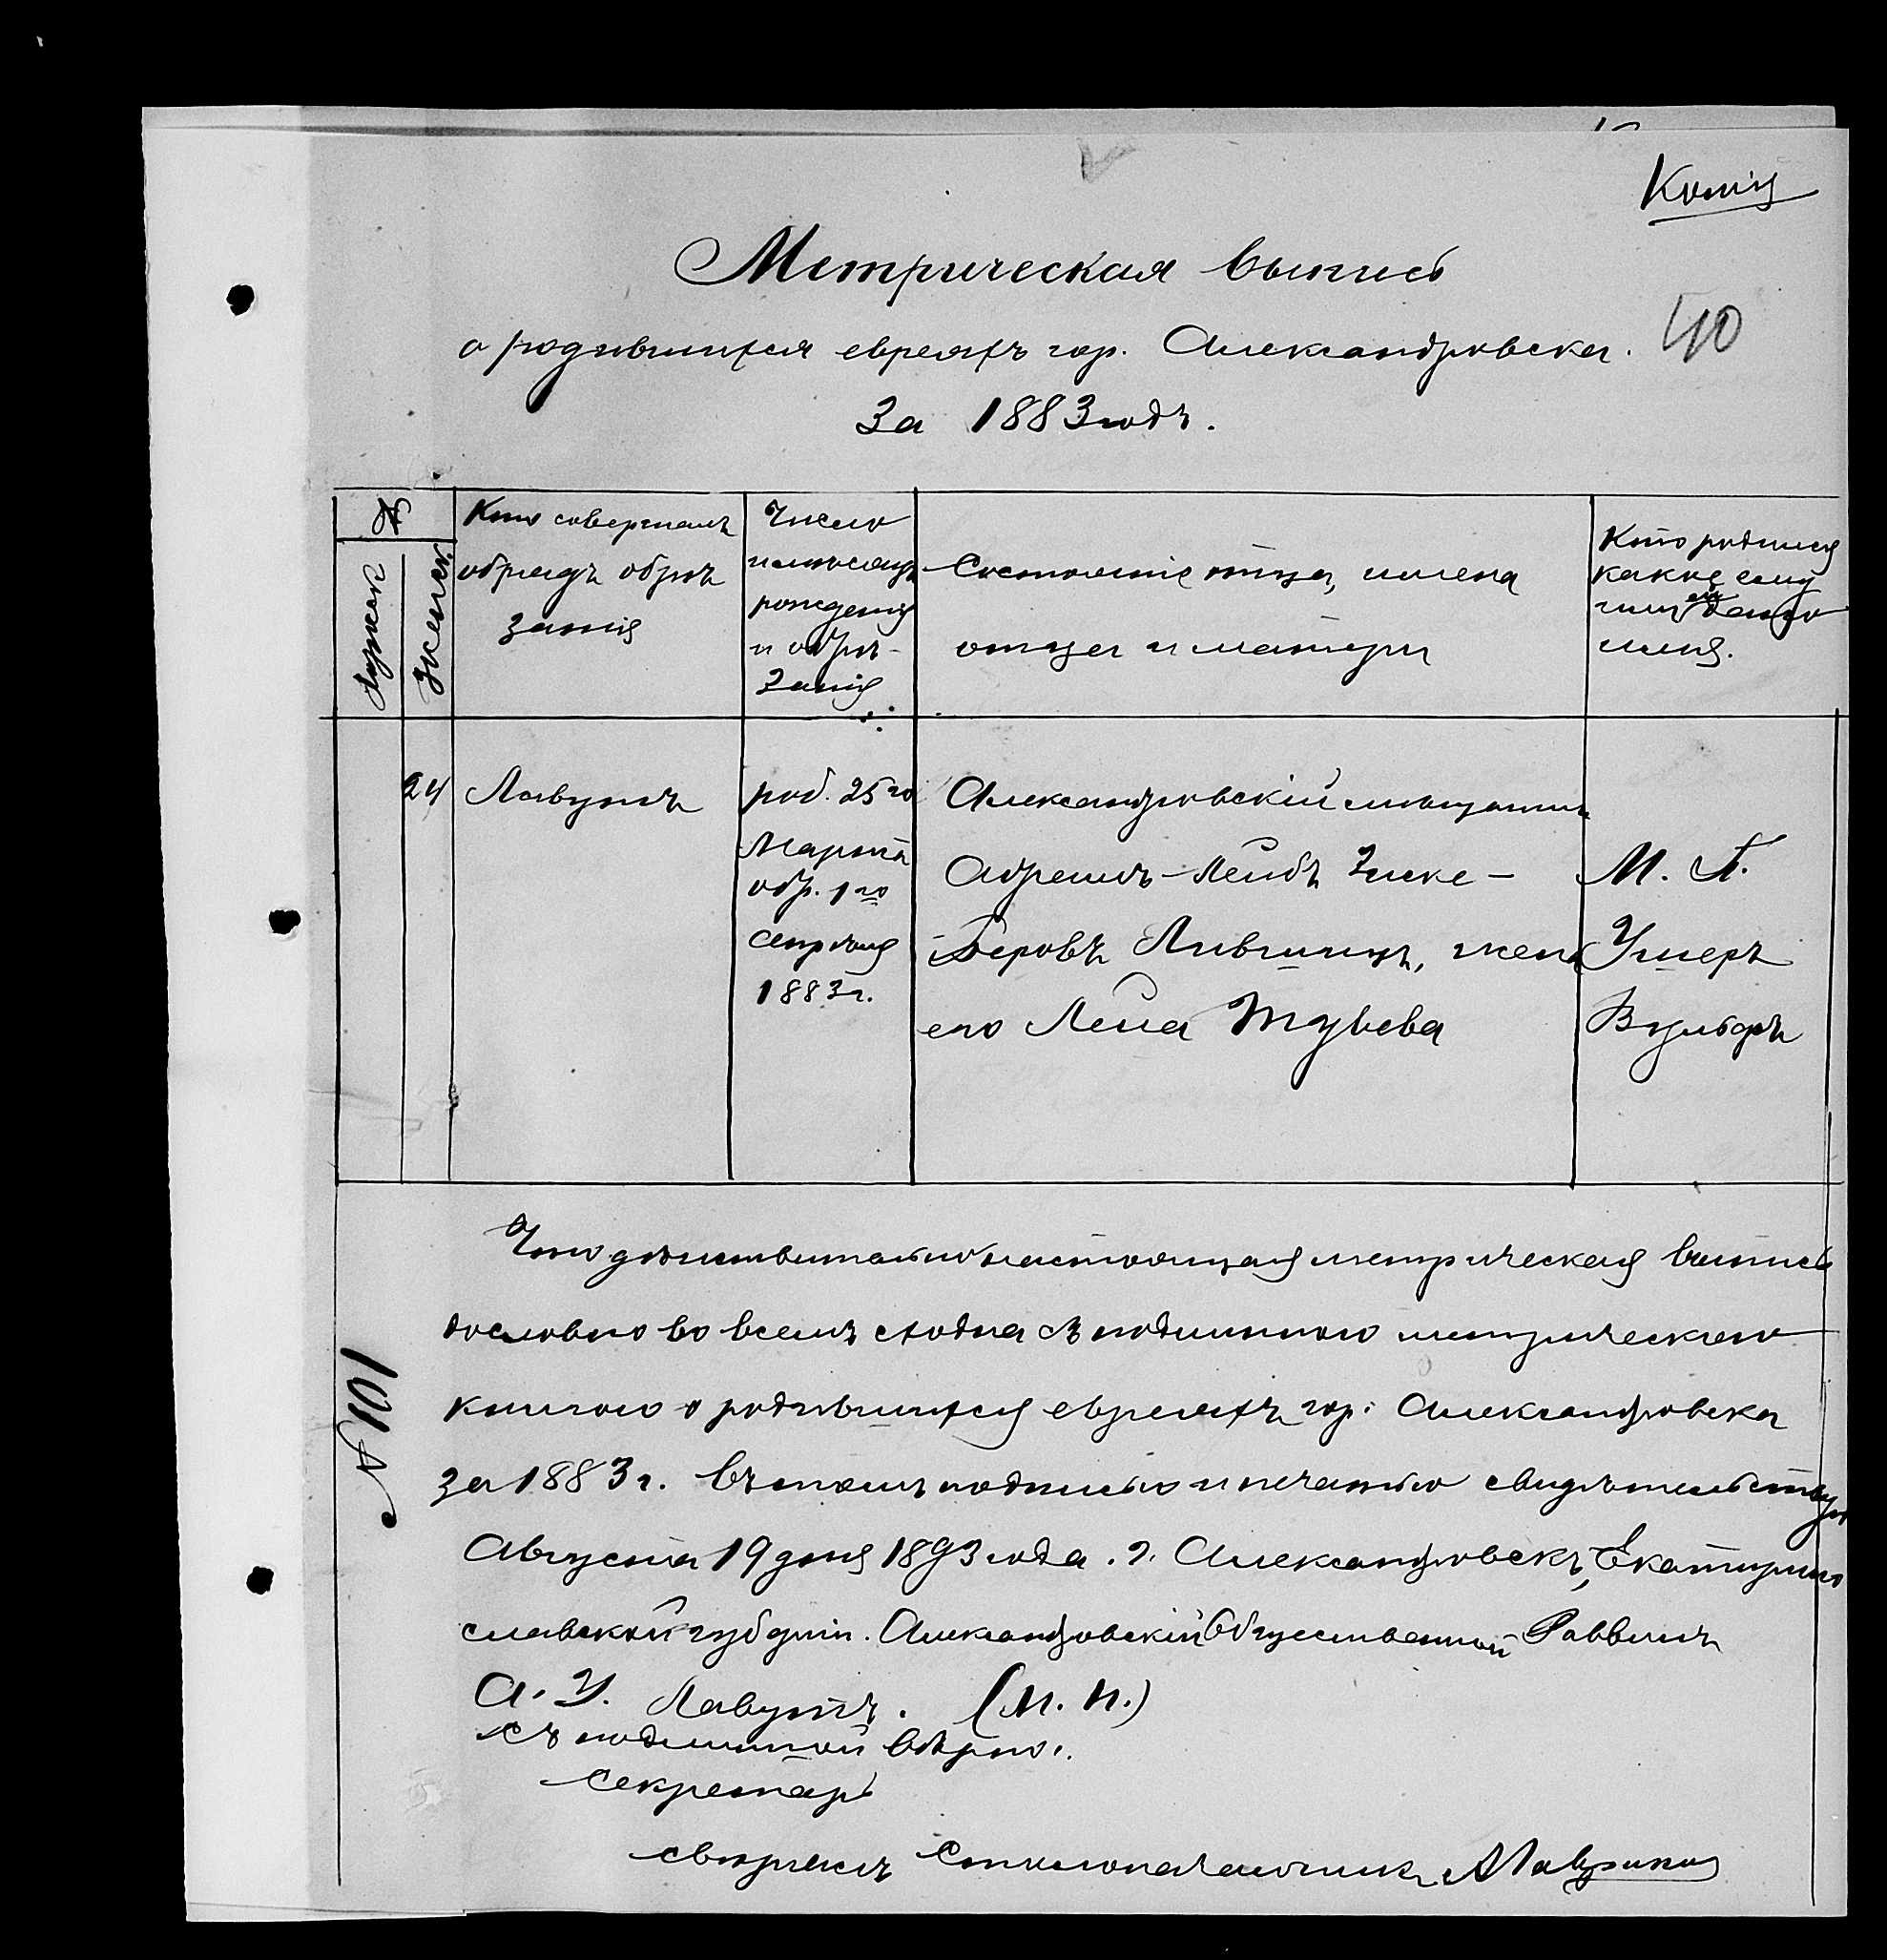 Копія
Метрическая выпись
о родившихся евреяхъ гор. Александровска.
40
За 1883 годъ.
№
Мужск
Женск.
Кто совершалъ
обрядъ обрѣ
занія
Число
и мѣсяцъ
рожденія
и обрѣ-
занія
Состояніе отца, имена
отца и матери
Кто родился
какое ему
или ей дано
имя.
24
Лавутъ
род. 25го
Марта
обр. 1го
1883 г.
Александровскій мѣщанинъ
Абрамъ-Лейбъ Зиске-
Беровъ Лившицъ, жена
его Лея Тувьева
М. П.
Ушеръ
Что дѣйствительно настоящая метрическая выпись
дословно во всемъ сходна съ подлинною метрическою
книгою о родившихся евреяхъ гор. Александровска
за 1883 г. въ томъ подписью и печатью свидѣтельствую
Августа 19 дня 1893 года. г. Александровскъ, Екатерино
славской губерніи. Александровскій Общественный Раввинъ
А. У. Лавутъ. (М. П.)
Съ подлинной вѣрно:
Секретарь
Свѣрялъ Столоначальникъ
№ 101